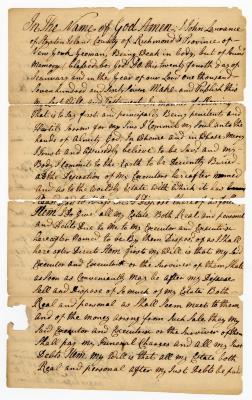 In The Name of God Amen, I John Lawrance
of Staten Island County of Richmond & Province of
New York Yeoman, Being Weak in body, but of Sound
Memory, blessed be God. Do this twenty fourth day of
January and in the Year of our Lord one thousand
Seven hundred and Sixty Seven Make and Publish this
my Last Will and Testament in manner of
That is to say first and principally Being penitent and
for my Sins I Commit my Soul into the
hands of almighty God In Whome and in Whose Mercy
I trust and assuredly believe to be Saved and my
Body I Commit to the Earth to be Decently Buried
at the Discretion of my Executors hereafter named
and as to the Worldly Estate With Which it has
Item I do Give all my Estate Both Real and personal
and Debts Due to me to my Executor and Executrixe
hereafter Named to be By them Disposed of as I Shall
here after Direct Item first my Will is that my Said
Executor and Executrix or the Survivor of them Shall
as soon as Conveniently may be after my Decease
Sell and Dispose of So much of my Estate Both
Real and personal as Shall Seem meet to them
and of the money arising from Such Sale, that my
Said Executor and Executrixe or the Survivor of them
Shall pay my Funeral Charges and all my Just
Debts Item my Will is that all my Estate both
Real and personal after my Just Debts be paid